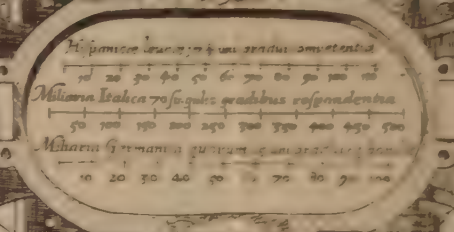 Hispanicae leucae uni gradui competentia
10 20 30 40 50 60 70 80 90 100
Miliaria Italica 70 singulis gradibus respondentia
50 100 150 200 250 300 350 400 450 500
Miliaria Germanica quorum
10 20 30 40 50 70 80 90 100